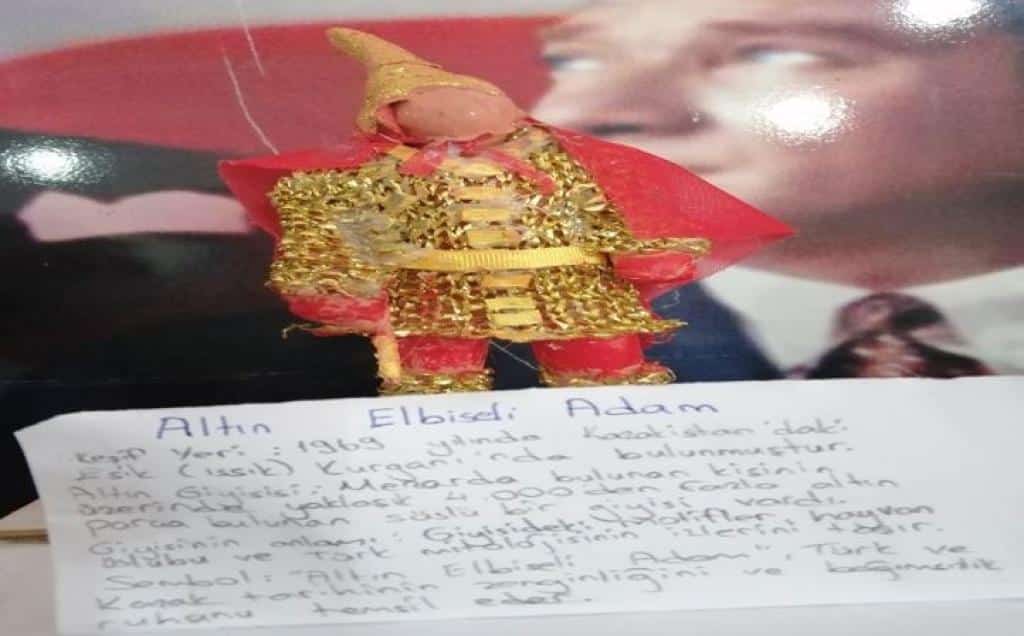 Altın Elbiseli Adam
Keşif Yeri : 1969 yılında Kazakistan'daki
Esik (Issık) Kurganı'nda bulunmuştur.
Altın Giyisisi: Mezarda bulunan kişinin
üzerinde yaklaşık 4.000'den fazla altın
parça bulunan süslü bir giyisi vardı.
Giyisinin anlamı: Giyisideki motifler hayvan
üslübu ve Türk mitolojisinin izlerini taşır.
Sembol: "Altın Elbiseli Adam", Türk ve
Kazak tarihinin zenginliğini ve bağımsızlık
ruhunu temsil eder.